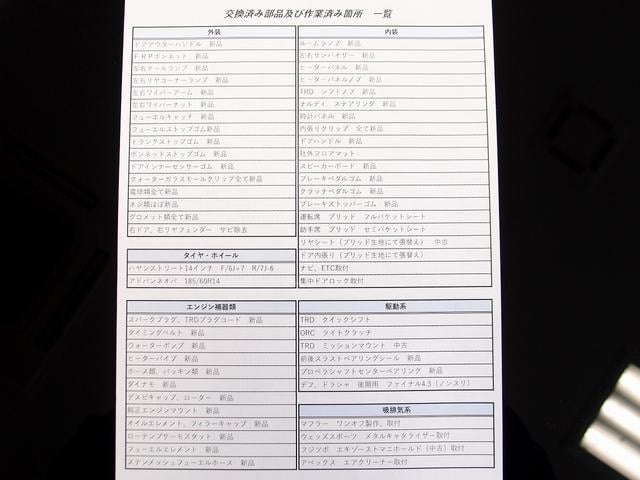 交換済み部品及び作業済み箇所　一覧
外装
ドアアウターハンドル　新品
FRPボンネット　新品
左右テールランプ　新品
左右リヤコーナーランプ　新品
左右ワイパーアーム　新品
左右ワイパーナット　新品
フューエルキャッチ　新品
フューエルストップゴム新品
トランクストップゴム　新品
ボンネットストップゴム　新品
ドアインナーセンサーゴム　新品
クォーターガラスモールクリップ全て新品
電球類全て新品
ネジ類ほぼ新品
グロメット類全て新品
右ドア、右リヤフェンダー　サビ除去
タイヤ・ホイール
ハヤシストリート14インチ　F/6J+7　R/7J-6
アドバンネオバ　185/60R14
エンジン補器類
スパークプラグ、TRDプラグコード　新品
タイミングベルト　新品
ウォーターポンプ　新品
ヒーターパイプ　新品
ホース類、パッキン類　新品
ダイナモ　新品
デスビキャップ、ローター　新品
純正エンジンマウント　新品
オイルエレメント、フィラーキャップ　新品
ローテンプサーモスタット　新品
フューエルエレメント　新品
ステンメッシュフューエルホース　新品
内装
ルームランプ　新品
左右サンバイザー　新品
ヒーターパネル　新品
ヒーターパネルノブ　新品
TRD　シフトノブ　新品
ナルディ　ステアリング　新品
時計パネル　新品
内張りクリップ　全て新品
ドアハンドル　新品
社外フロアマット
スピーカーボード　新品
ブレーキペダルゴム　新品
クラッチペダルゴム　新品
ブレーキストッパーゴム　新品
運転席　ブリッド　フルバケットシート
助手席　ブリッド　セミバケットシート
リヤシート（ブリッド生地にて張替え）　中古
ドア内張り（ブリッド生地にて張替え）
ナビ、ETC取付
集中ドアロック取付
駆動系
TRD　クイックシフト
ORC　ライトクラッチ
TRD　ミッションマウント　中古
前後スラストベアリングシール　新品
プロペラシャフトセンターベアリング　新品
デフ、ドラシャ　後期用　ファイナル4.3（ノンスリ）
吸排気系
マフラー　ワンオフ製作、取付
ウェッズスポーツ　メタルキャタライザー取付
フジツボ　エキゾーストマニホールド（中古）取付
アペックス　エアクリーナー取付